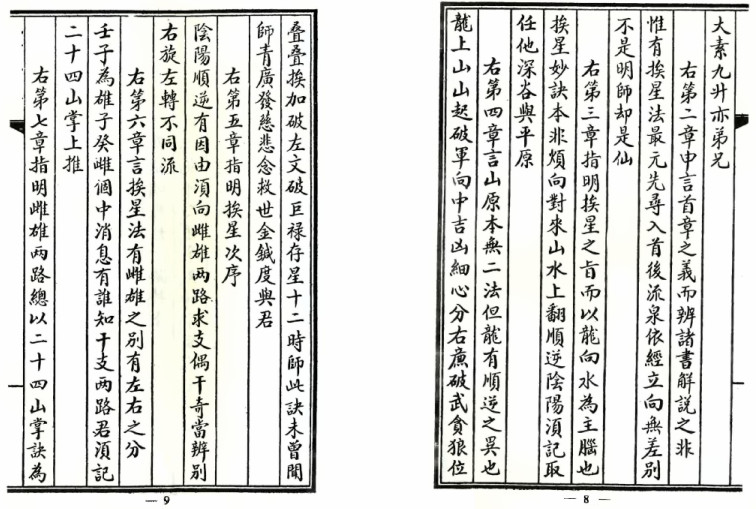 大素九升亦弟兄
右第二章申言首章之義而辨諸書解說之非
惟有挨星法最元先尋入首後流泉依經立向無差別
不是明師却是仙
右第三章指明挨星之旨而以龍向水為主腦也
挨星妙訣本非煩向對來山水上翻順逆陰陽須記取
任他深谷與平原
右第四章言山原本無二法但龍有順逆之異也
龍上山山起破軍向中吉凶細心分右廉破武貪狼位
— 8 —
疊疊挨加破左文破巨祿存星十二時師此訣未曾聞
師青廣發慈悲念救世金鍼度與君
右第五章指明挨星次序
陰陽順逆有因由須向雌雄两路求支偶干奇當辨別
右旋左轉不同流
右第六章言挨星法有雌雄之別有左右之分
壬子為雄子癸雌個中消息有誰知干支两路君須記
二十四山掌上推
右第七章指明雌雄两路總以二十四山掌訣為
— 9 —